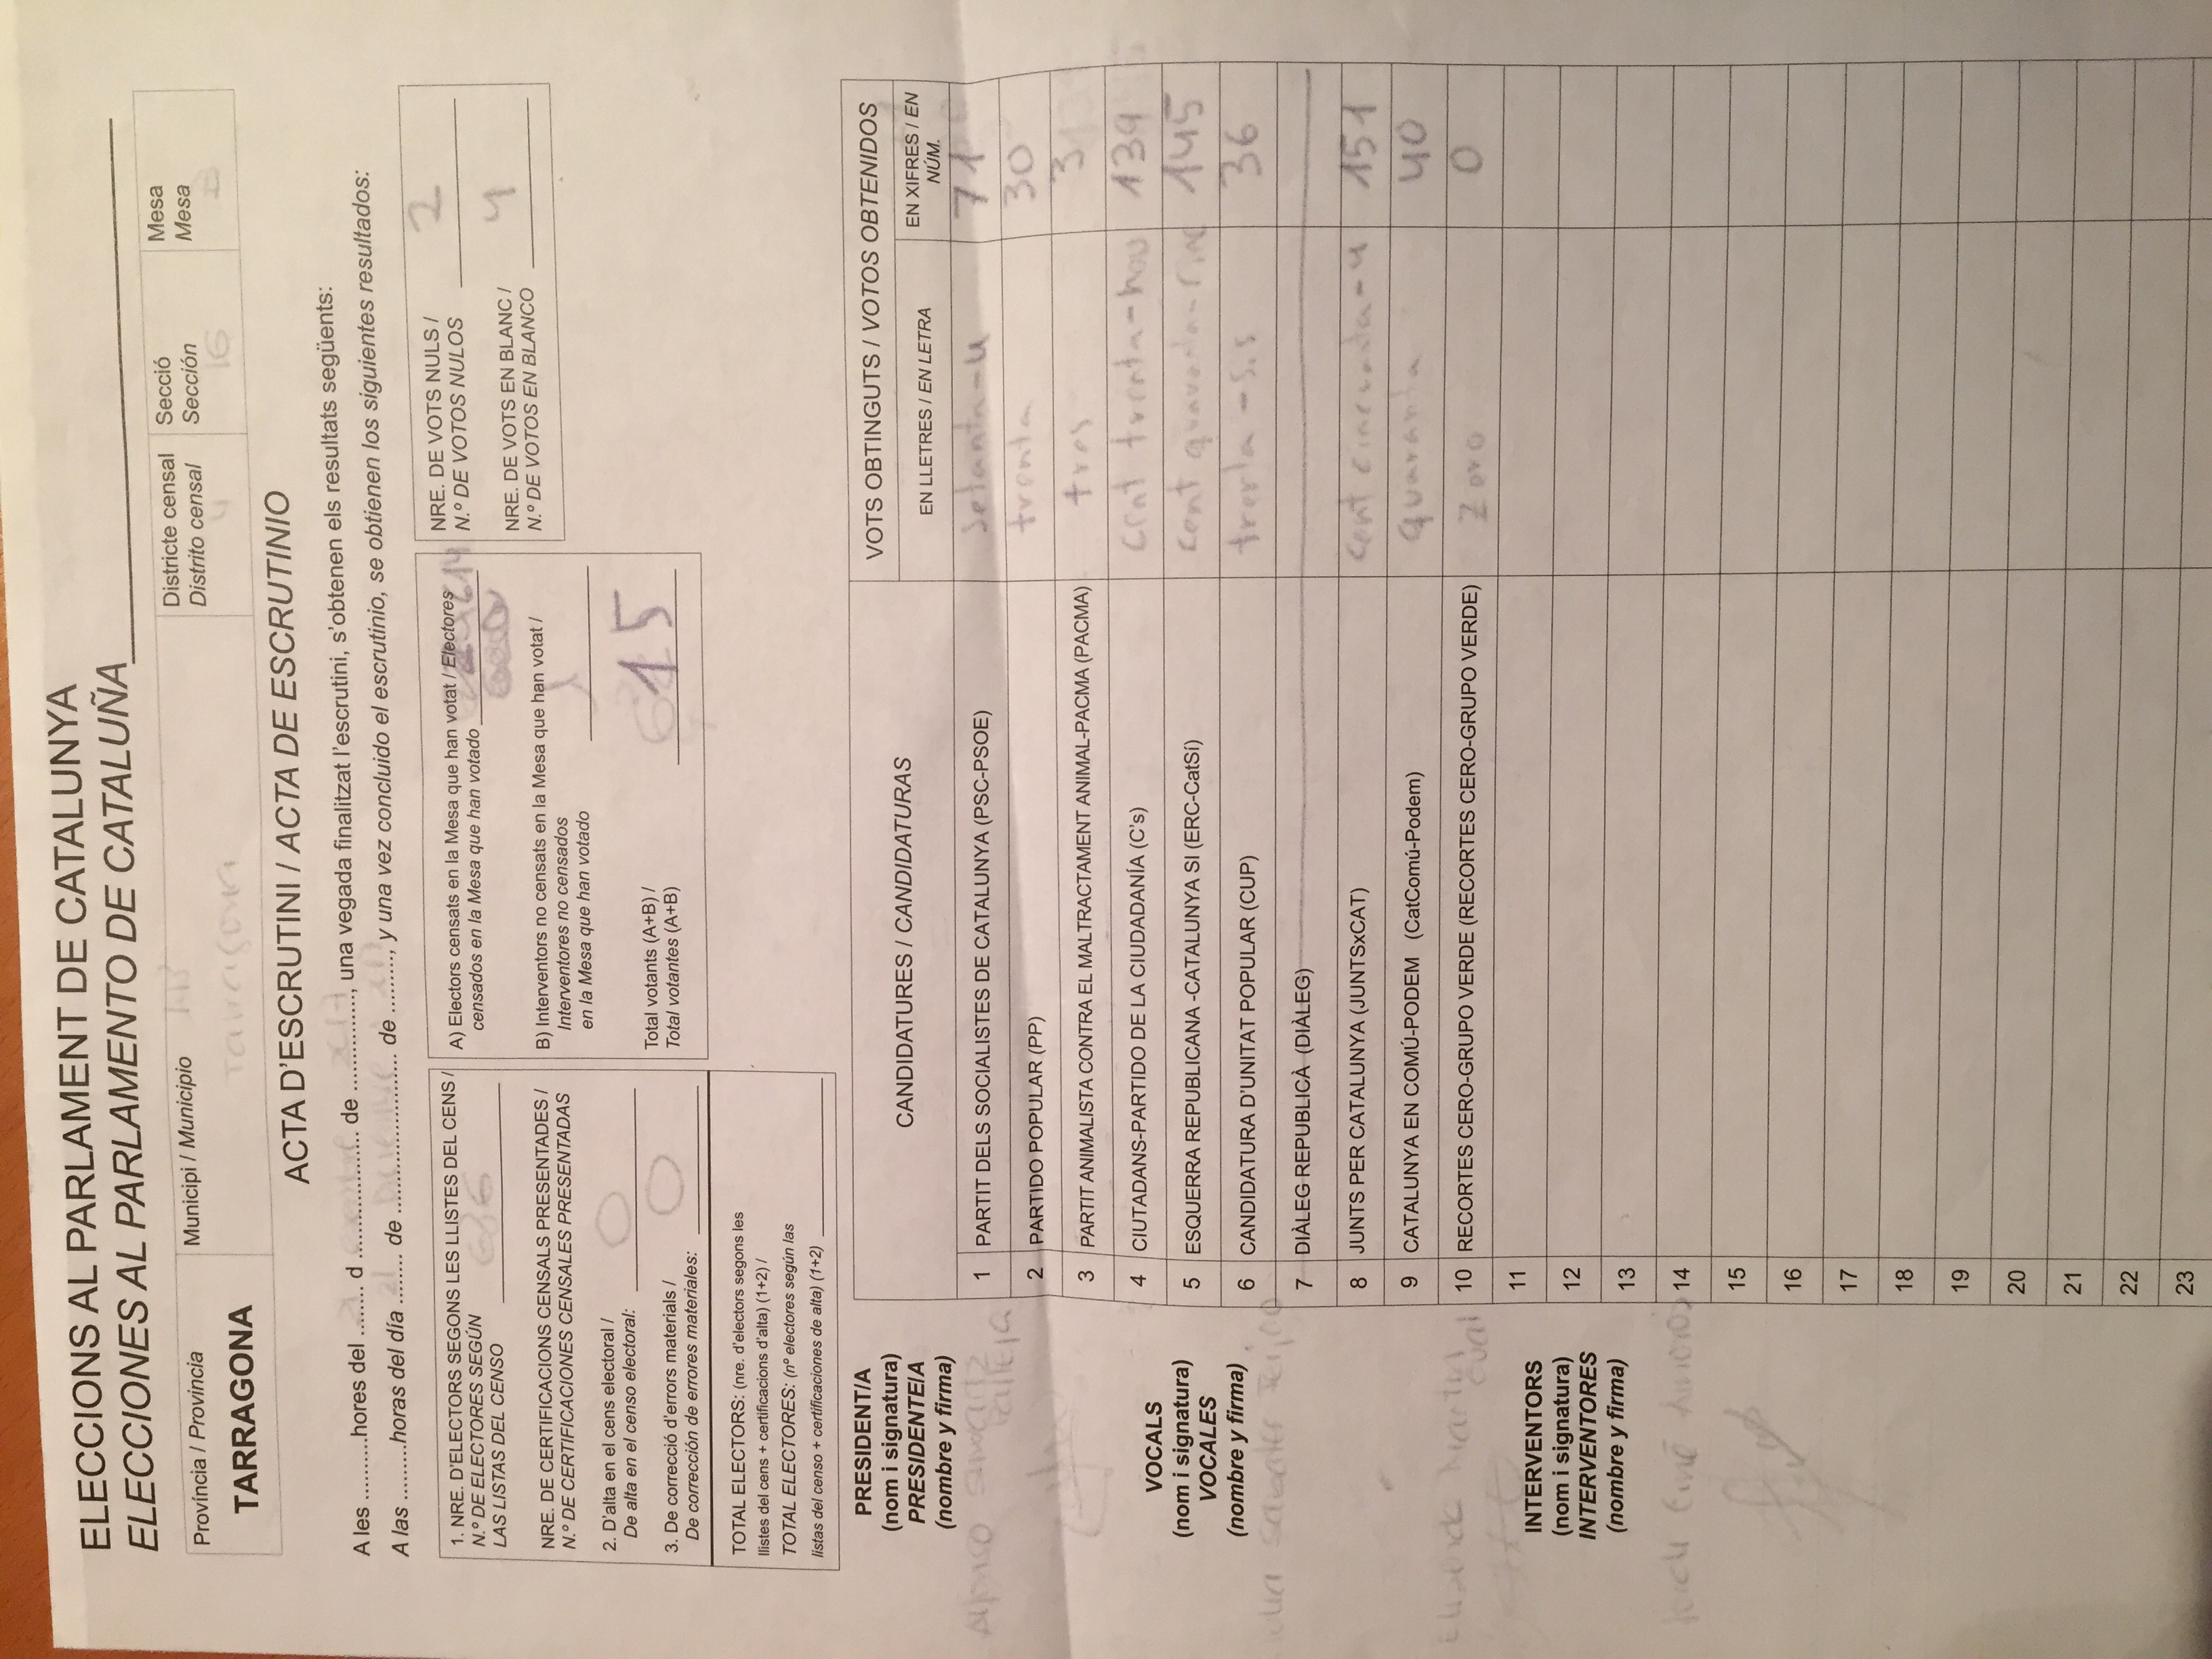 ELECCIONS AL PARLAMENT DE CATALUNYA
ELECCIONES AL PARLAMENTO DE CATALUÑA
Província / Provincia
TARRAGONA
Municipi / Municipio
Tarragona
Districte censal
Distrito censal
4
Secció
Sección
16
Mesa
Mesa
B
ACTA D'ESCRUTINI / ACTA DE ESCRUTINIO
A les ..........hores del ........ d ..................... de ................, una vegada finalitzat l'escrutini, s'obtenen els resultats següents:
A las .........horas del día 21 de Diciembre de ........., y una vez concluido el escrutinio, se obtienen los siguientes resultados:
1. NRE. D'ELECTORS SEGONS LES LLISTES DEL CENS /
N.º DE ELECTORES SEGÚN
LAS LISTAS DEL CENSO
NRE. DE CERTIFICACIONS CENSALS PRESENTADES /
N.º DE CERTIFICACIONES CENSALES PRESENTADAS
2. D'alta en el cens electoral /
De alta en el censo electoral: 0
3. De correcció d'errors materials /
De corrección de errores materiales: 0
TOTAL ELECTORS: (nre. d'electors segons les
llistes del cens + certificacions d'alta) (1+2) /
TOTAL ELECTORES: (nº electores según las
listas del censo + certificaciones de alta) (1+2)
A) Electors censats en la Mesa que han votat / Electores
censados en la Mesa que han votado 614
B) Interventors no censats en la Mesa que han votat /
Interventores no censados
en la Mesa que han votado 1
Total votants (A+B) /
Total votantes (A+B) 615
NRE. DE VOTS NULS /
N.º DE VOTOS NULOS 2
NRE. DE VOTS EN BLANC /
N.º DE VOTOS EN BLANCO
PRESIDENT/A
(nom i signatura)
PRESIDENTE/A
(nombre y firma)
Alfonso
VOCALS
(nom i signatura)
VOCALES
(nombre y firma)
Sabater
Martin
INTERVENTORS
(nom i signatura)
INTERVENTORES
(nombre y firma)
CANDIDATURES / CANDIDATURAS
VOTS OBTINGUTS / VOTOS OBTENIDOS
EN LLETRES / EN LETRA
EN XIFRES / EN
NÚM.
1 PARTIT DELS SOCIALISTES DE CATALUNYA (PSC-PSOE) Setanta-u 71
2 PARTIDO POPULAR (PP) trenta 30
3 PARTIT ANIMALISTA CONTRA EL MALTRACTAMENT ANIMAL-PACMA (PACMA) tres 3
4 CIUTADANS-PARTIDO DE LA CIUDADANÍA (C's) Cent trenta-nou 139
5 ESQUERRA REPUBLICANA -CATALUNYA SI (ERC-CatSí) cent quaranta-cinc 145
6 CANDIDATURA D'UNITAT POPULAR (CUP) trenta-sis 36
7 DIÀLEG REPUBLICÀ (DIÀLEG)
8 JUNTS PER CATALUNYA (JUNTSxCAT) Cent cincuanta-u 151
9 CATALUNYA EN COMÚ-PODEM (CatComú-Podem) quaranta 40
10 RECORTES CERO-GRUPO VERDE (RECORTES CERO-GRUPO VERDE) Zero 0
11
12
13
14
15
16
17
18
19
20
21
22
23